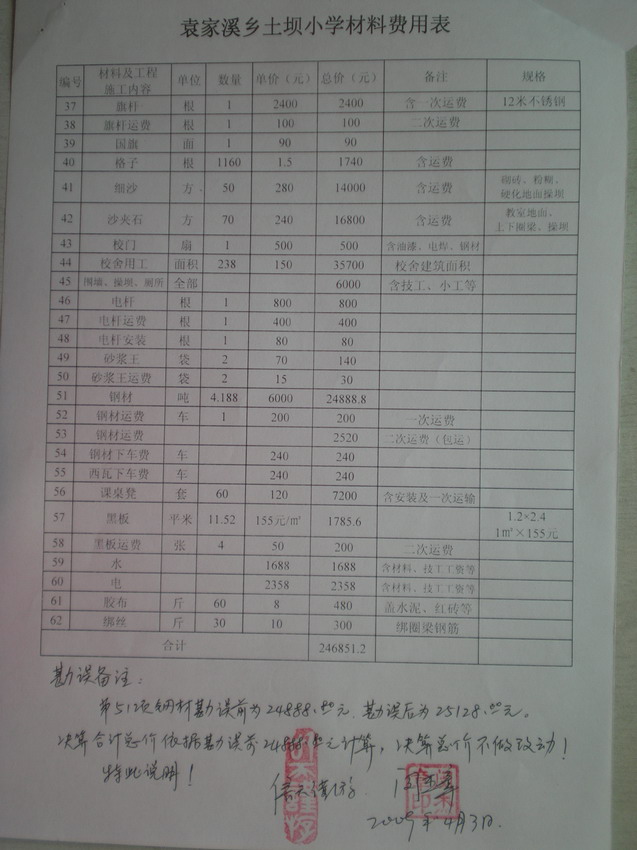 袁家溪乡土坝小学材料费用表
编号 材料及工程施工内容 单位 数量 单价（元） 总价（元） 备注 规格
37 旗杆 根 1 2400 2400 含一次运费 12米不锈钢
38 旗杆运费 根 1 100 100 二次运费
39 国旗 面 1 90 90
40 格子 根 1160 1.5 1740 含运费
41 细沙 方 50 280 14000 含运费 砌砖、粉糊、硬化地面操坝
42 沙夹石 方 70 240 16800 含运费 教室地面、上下圈梁、操坝
43 校门 扇 1 500 500 含油漆、电焊、钢材
44 校舍用工 面积 238 150 35700 校舍建筑面积
45 围墙、操坝、厕所 全部 6000 含技工、小工等
46 电杆 根 1 800 800
47 电杆运费 根 1 400 400
48 电杆安装 根 1 80 80
49 砂浆王 袋 2 70 140
50 砂浆王运费 袋 2 15 30
51 钢材 吨 4.188 6000 24888.8
52 钢材运费 车 1 200 200 一次运费
53 钢材运费 2520 二次运费（包运）
54 钢材下车费 车 240 240
55 西瓦下车费 车 240 240
56 课桌凳 套 60 120 7200 含安装及一次运输
57 黑板 平米 11.52 155元/㎡ 1785.6 1.2×2.4 1㎡×155元
58 黑板运费 张 4 50 200 二次运费
59 水 1688 1688 含材料、技工工资等
60 电 2358 2358 含材料、技工工资等
61 胶布 斤 60 8 480 盖水泥、红砖等
62 绑丝 斤 30 10 300 绑圈梁钢筋
合计 246851.2
勘误备注：
第51项钢材勘误前为24888.80元，勘误后为25128.00元。
决算合计总价依据勘误前24888.80元计算，决算总价不做改动！
特此说明！
2009年4月3日.